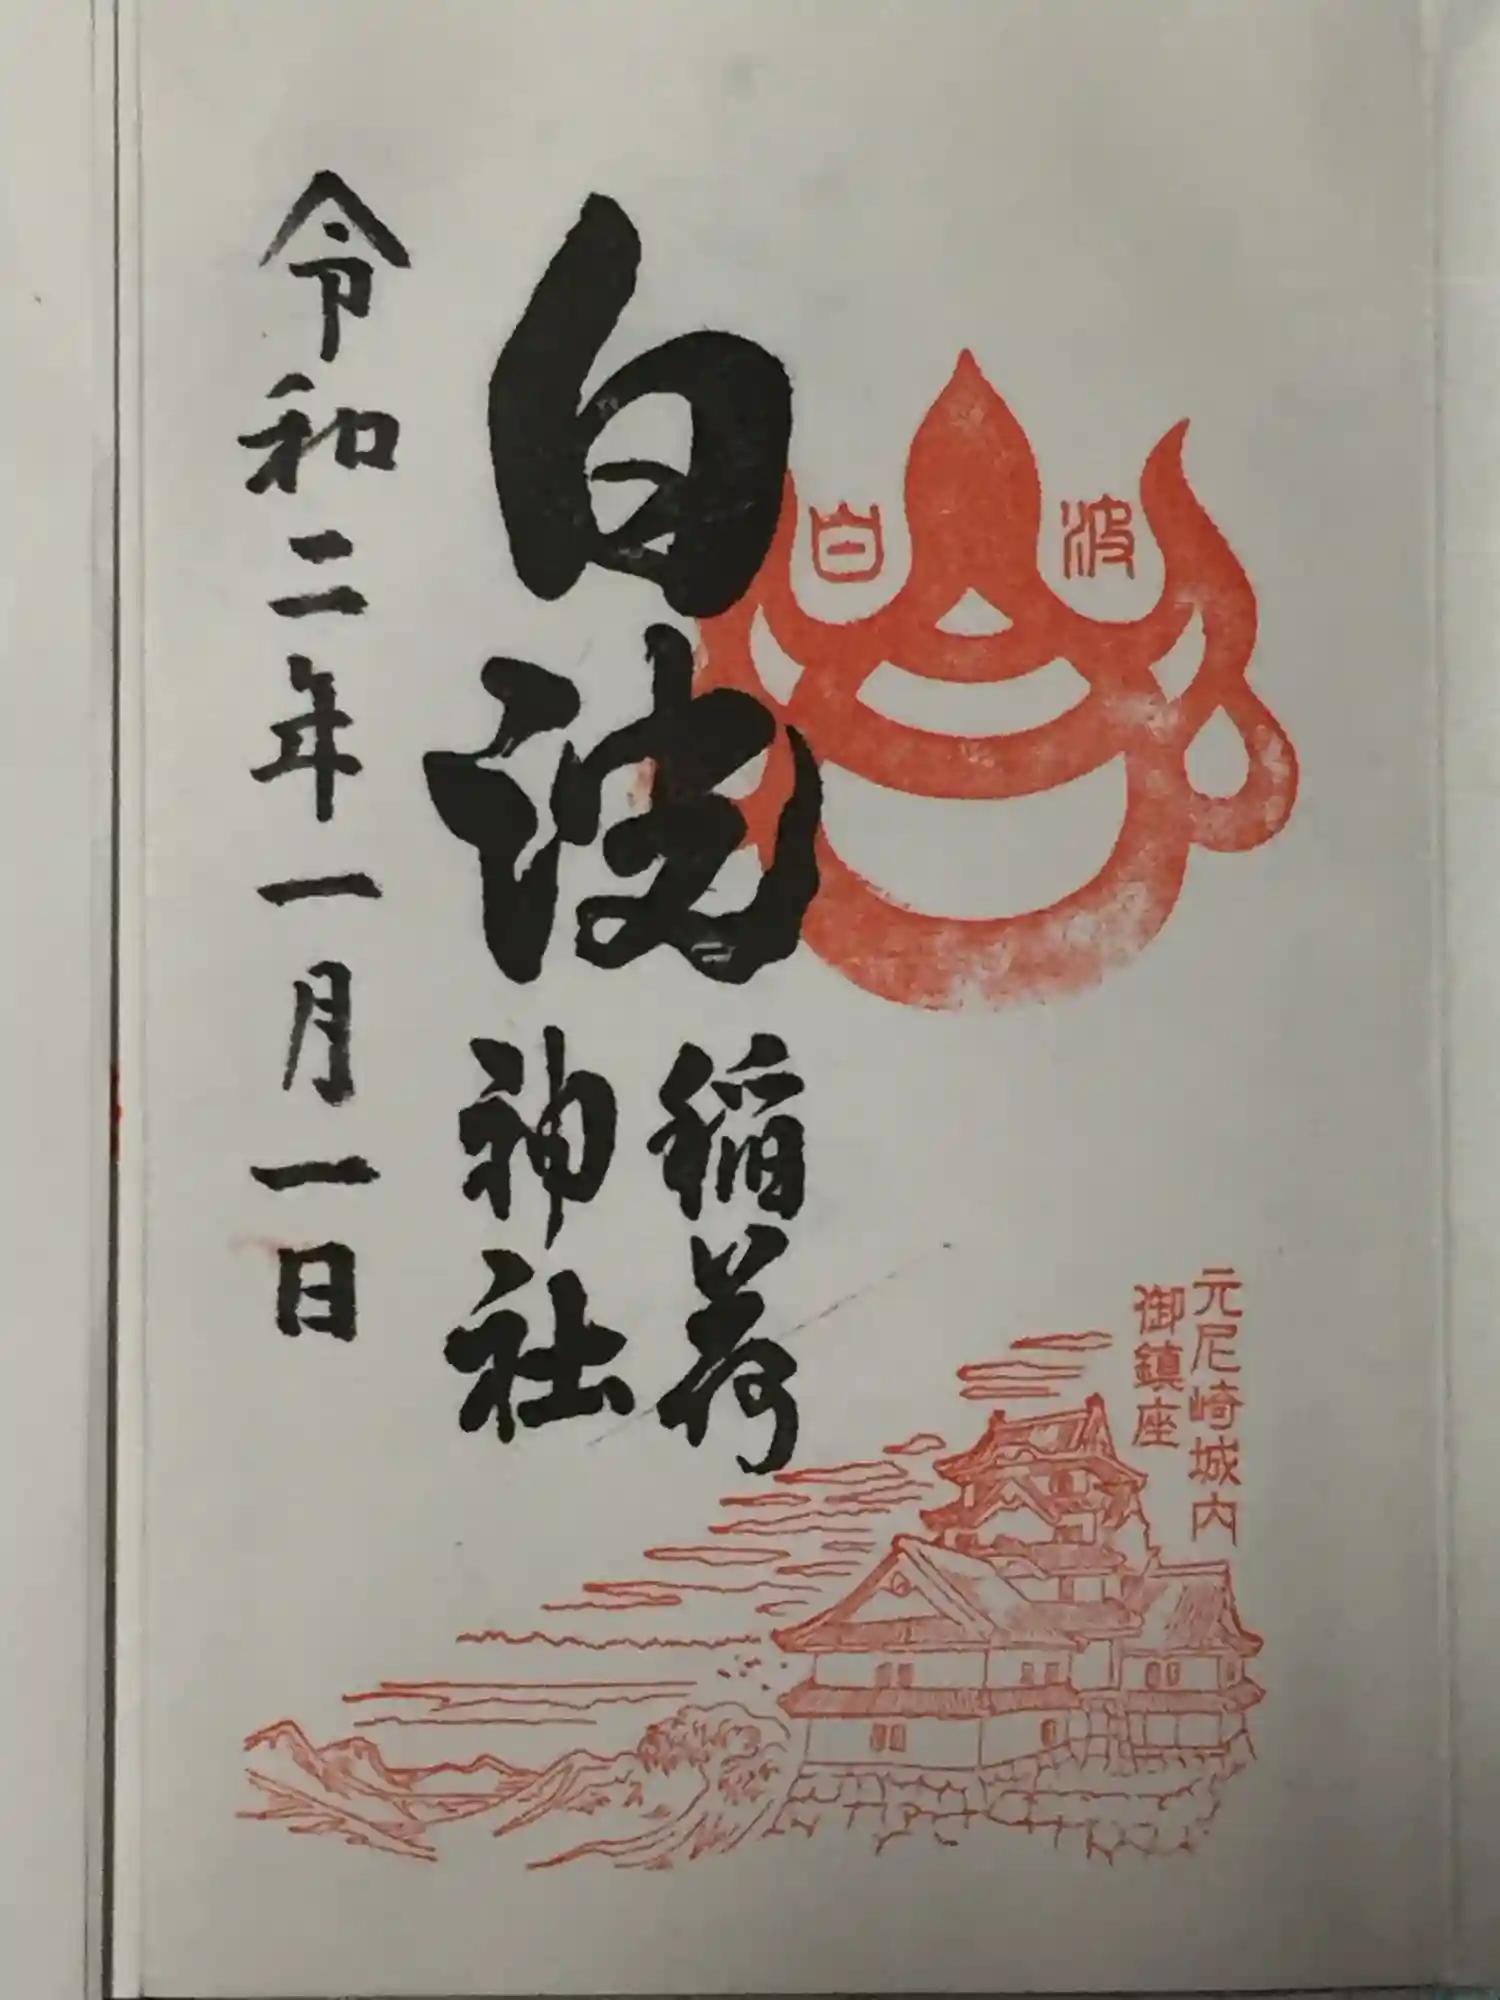 白 波
元尼崎城内
御鎮座
白波
稲荷
神社
令和二年一月一日